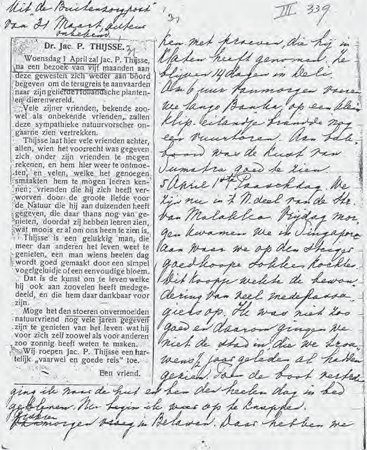 Uit de Buitenzorgpost
van 31 Maart, auteur
onbekend.
III 339
Dr. Jac. P. THIJSSE.
Woensdag 1 April zal Jac. P. Thijsse,
na een bezoek van vijf maanden aan
deze gewesten zich weder aan boord
begeven om de terugreis te aanvaarden
naar zijn geliefde Hollandsche planten-
en dierenwereld.
Vele zijner vrienden, bekende zoo-
wel als onbekende vrienden, zullen
dezen sympathieke natuurvorscher on-
gaarne zien vertrekken.
Thijsse laat hier vele vrienden achter,
allen, wien het voorrecht was gegeven
zich onder zijn vrienden te mogen
rekenen, en hem hier weer te ontmoe-
ten, en velen, welke het genoegen
smaakten hem te mogen leeren ken-
nen; vrienden die hij zich heeft ver-
worven door de groote liefde voor
de Natuur die hij aan duizenden heeft
gegeven, die daar thans nog van ge-
nieten, doordat zij hebben leeren zien,
wat moois er al om ons heen te zien is.
Thijsse is een gelukkig man, die
meer dan anderen het leven weet te
genieten, een man wiens heele dag
wordt goed gemaakt door een simpel
vogelgeluidje of een eenvoudige bloem.
Dat is de kunst om te leven welke
hij ook aan zoovelen heeft medege-
deeld, en die hem daar dankbaar voor
zijn.
Moge het den stoeren onvermoeiden
natuurvriend nog vele jaren gegeven
zijn te genieten van het leven wat hij
voor zich zelf zoowel als voor anderen
zoo zonnig heeft weten te maken.
Wij roepen Jac. P. Thijsse een har-
telijk „vaarwel en goede reis" toe.
Een vriend.
ken met proeven, die hij in
Klaten heeft genomen, he
blijven 14 dagen in Deli
Om 6 uur vanmorgen voeren
we langs Banka, op een klein
eilandje brandde nog
een vuurtoren. Aan bak-
boord was de kust van
Sumatra goed te zien
5 April 1ste Paaschdag. We
zijn nu in 't N. deel van de Str
van Malakka. Vrijdag mor-
gen kwamen we in Singapore
aan waar we op den steiger
goedkoope sokken kochten
goed en daarom gingen we
niet de stad in, die we
jaar geleden al hadden
gezien. Van de boot
ging ik naar de hut en ben den heelen dag in bed
gebleven. Nu begin ik weer op te knappen.
vroeg in Belawan. Daar hebben we